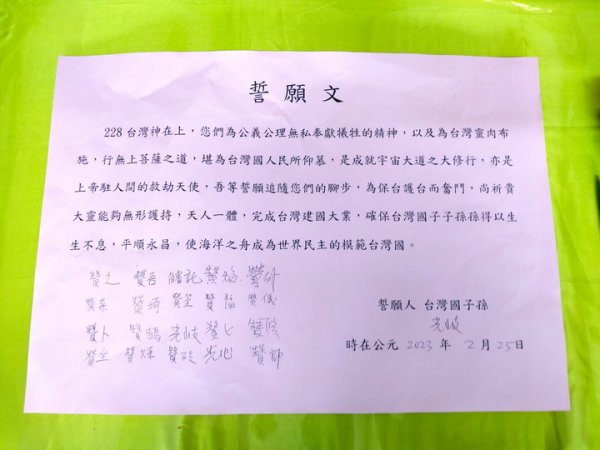 誓願文
228台灣神在上，您們為公義公理無私奉獻犧牲的精神，以及為台灣靈肉布
施，行無上菩薩之道，堪為台灣國人民所仰慕，是成就宇宙大道之大修行，亦是
上帝駐人間的救劫天使，吾等誓願追隨您們的腳步，為保台護台而奮鬥，尚祈貴
大靈能夠無形護持，天人一體，完成台灣建國大業，確保台灣國子子孫孫得以生
生不息，平順永昌，使海洋之舟成為世界民主的模範台灣國。
誓願人 台灣國子孫
時在公元 2023 年 2 月 25 日